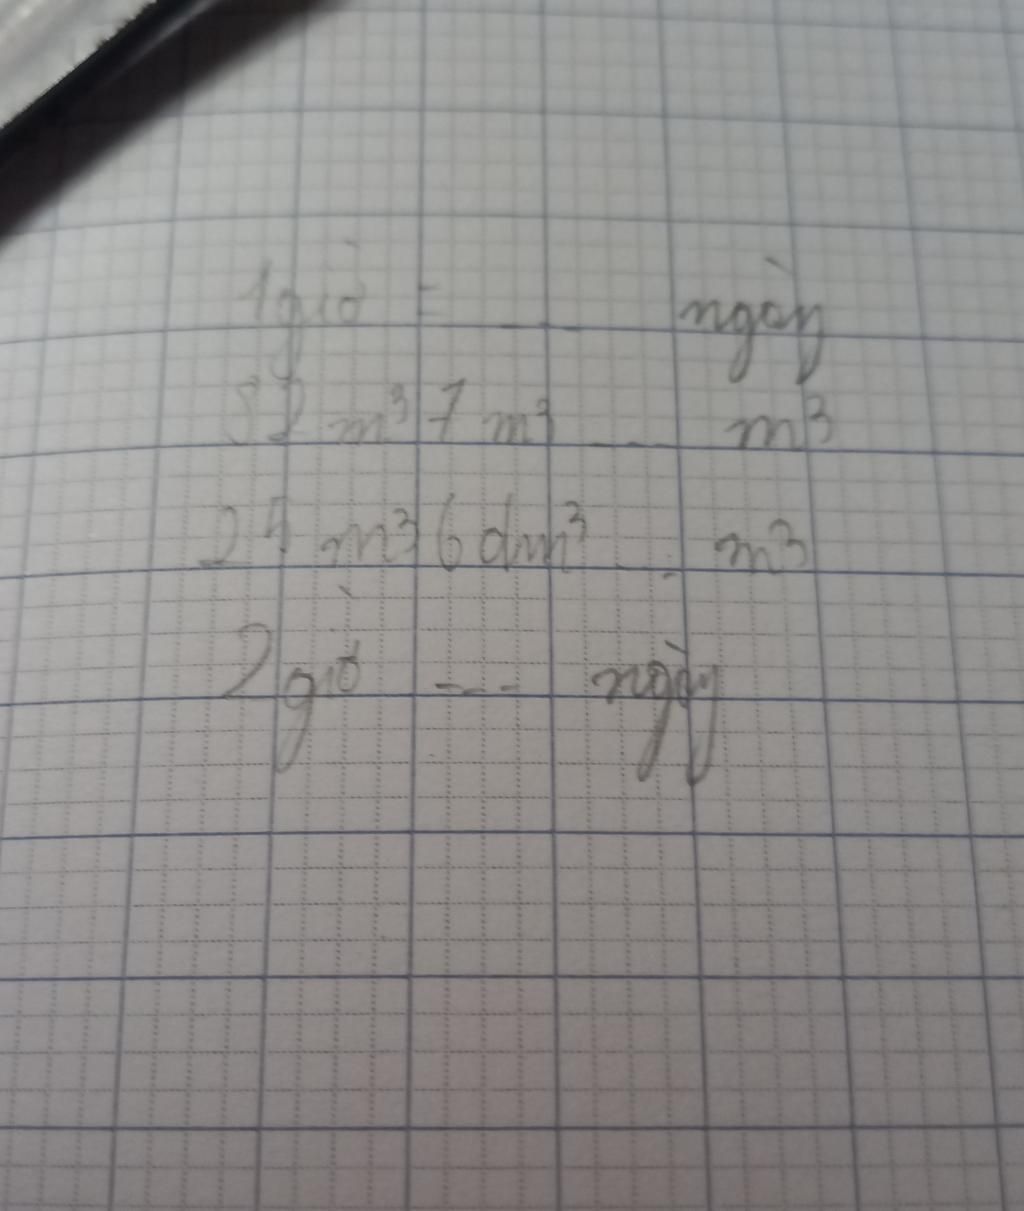 1 giờ = ... ngày
52 m³ 7 m³ ... m³
25 m³ 6 dm³ ... m³
2 giờ ... ngày